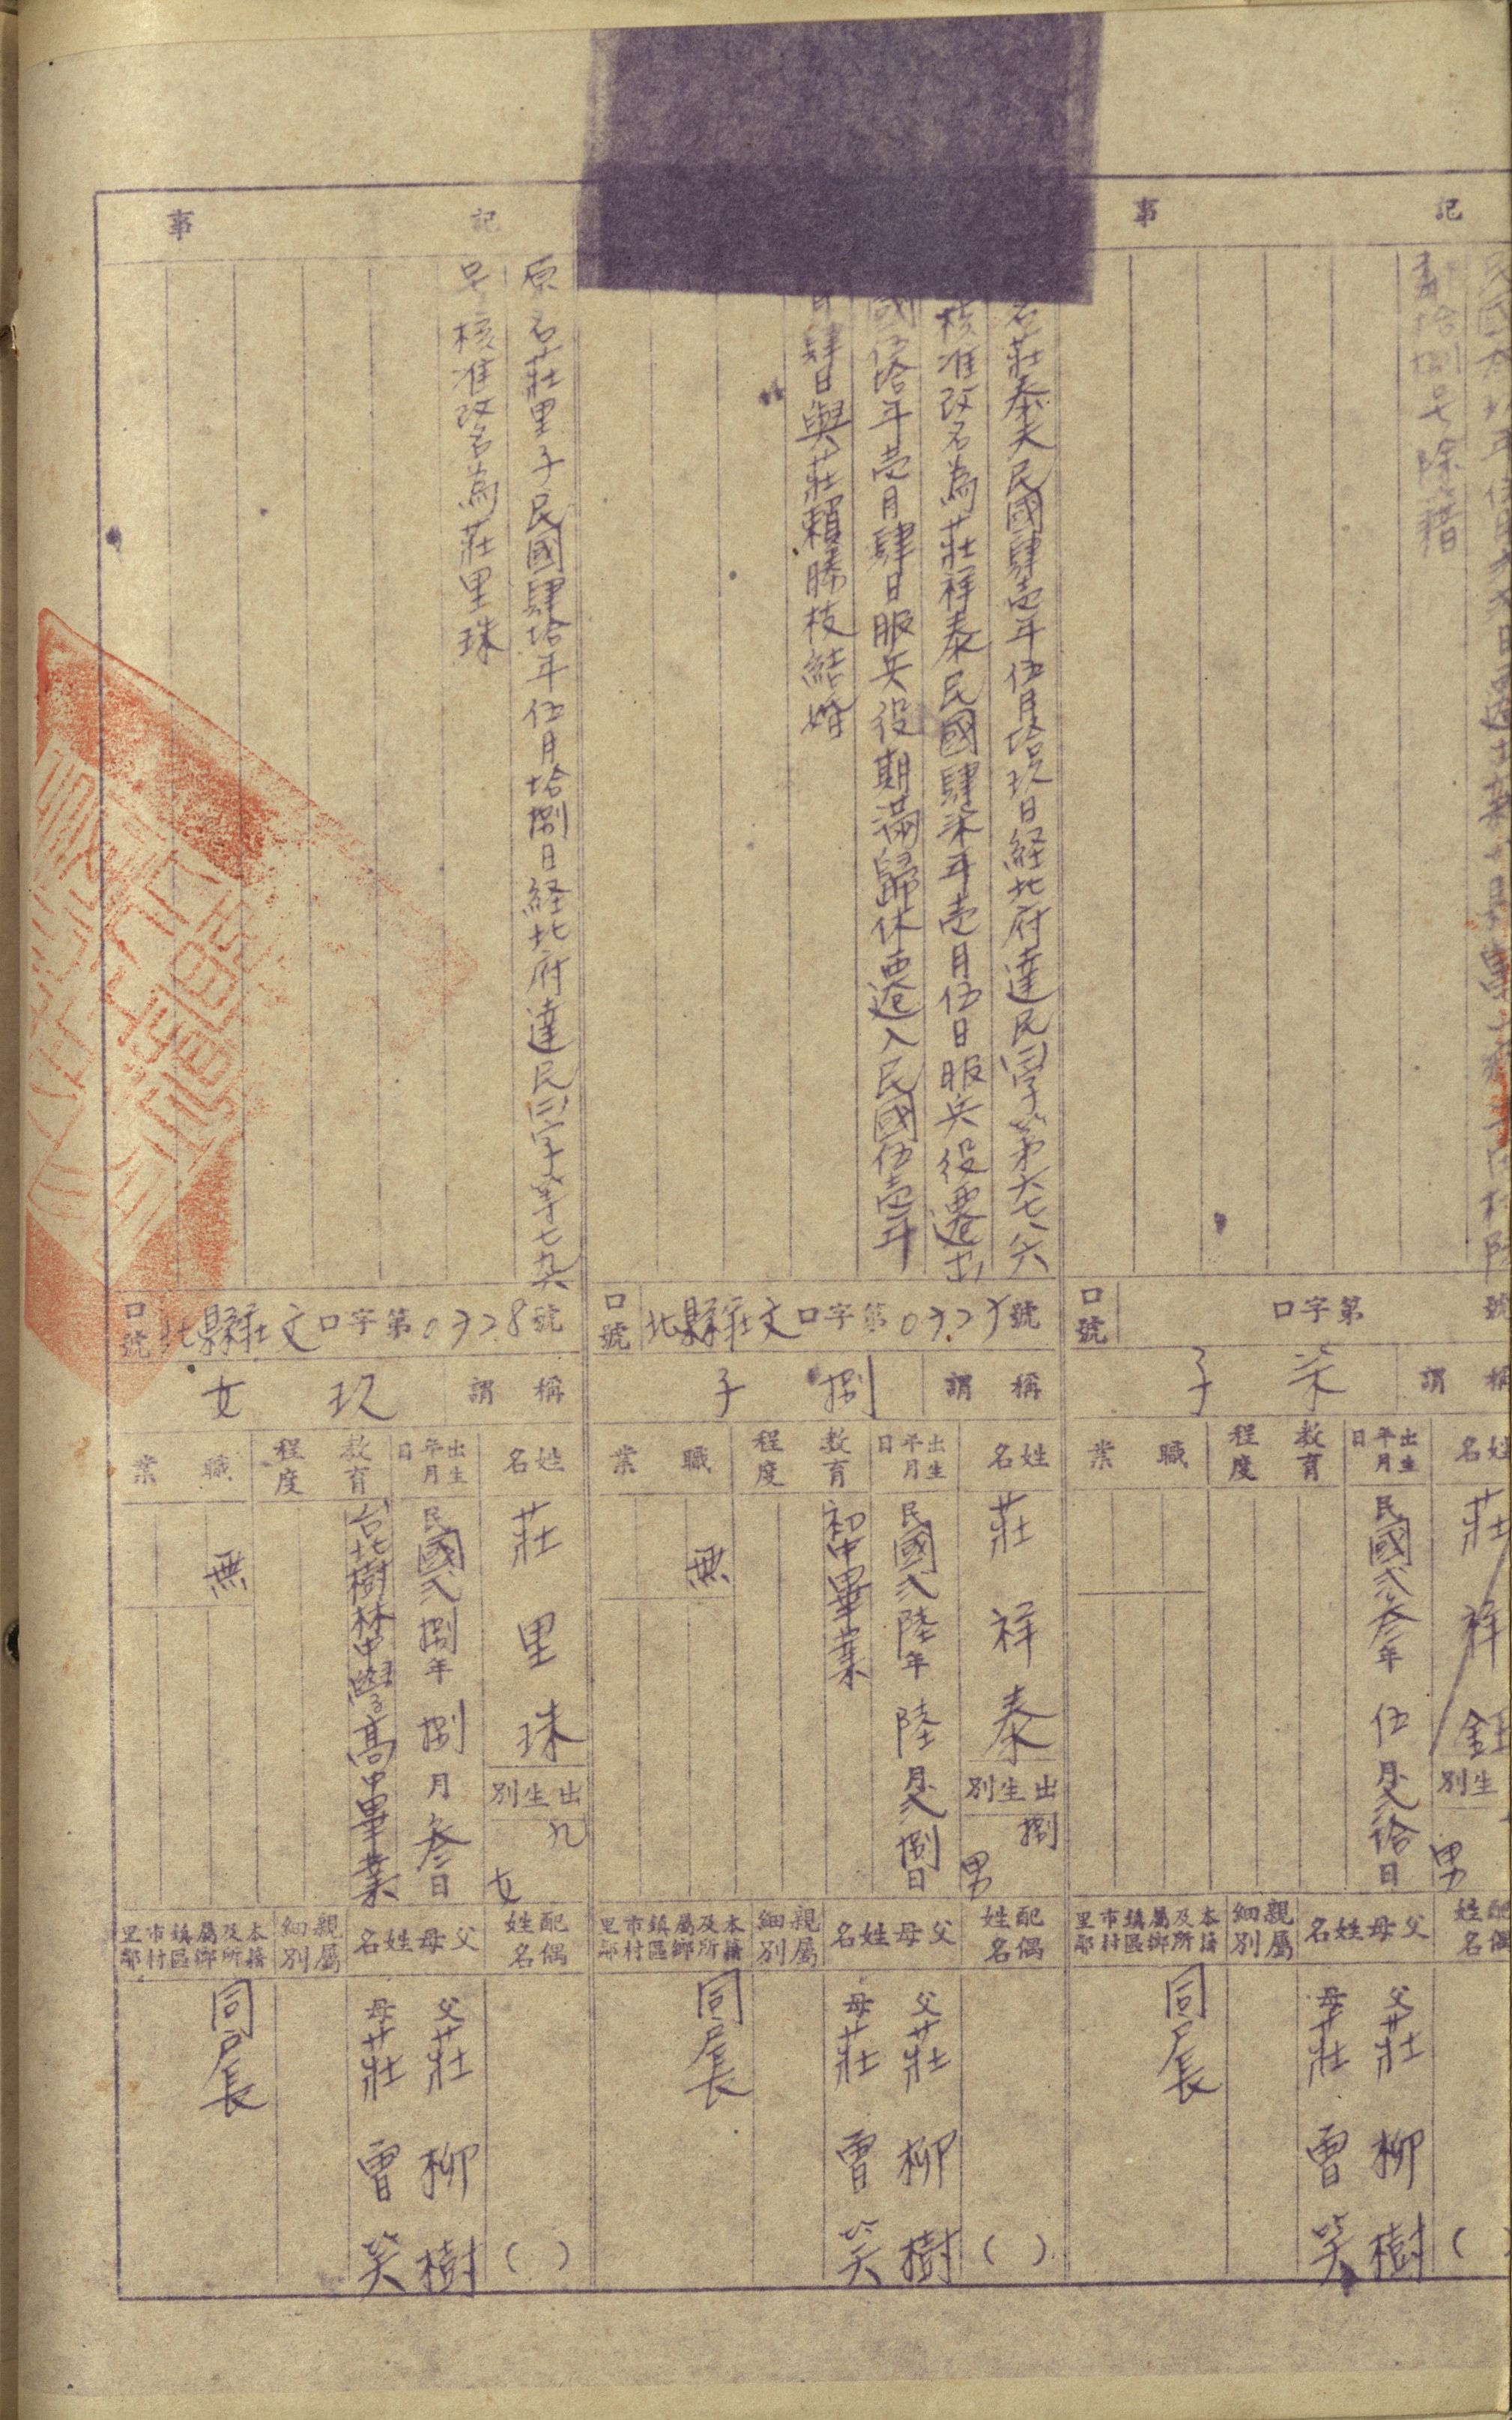 記事
拾捌号除籍
口號
口字第 號
稱謂
柒子
姓名
莊祥鈺
出生別
男
出生年月日
民國貳叁年伍月貳拾日
教育程度
職業
配偶姓名
( )
父母姓名
父莊柳樹
母莊曾笑
親屬細別
本籍及所屬鄉鎮區市村里鄰
同戶長
名莊泰夫民國肆壹年伍月拾玖日経北府達民字第六七
核准改名為莊祥泰民國肆柒年壹月伍日服兵役遷出
國伍拾年壹月肆日服兵役期滿歸休遷入民國伍壹年
月肆日與莊賴勝枝結婚
口號
北縣莊文口字第 號
稱謂
捌子
姓名
莊祥泰
出生別
捌男
出生年月日
民國貳陸年陸月貳捌日
教育程度
初中畢業
職業
無
配偶姓名
( )
父母姓名
父莊柳樹
母莊曾笑
親屬細別
本籍及所屬鄉鎮區市村里鄰
同戶長
記事
原名莊里子民國肆拾年伍月拾捌日経北府達民(三)字第七九六
号核准改名為莊里珠
口號
北縣莊文口字第0328號
稱謂
玖女
姓名
莊里珠
出生別
九女
出生年月日
民國貳捌年捌月叁日
教育程度
台北樹林中學高中畢業
職業
無
配偶姓名
( )
父母姓名
父莊柳樹
母莊曾笑
親屬細別
本籍及所屬鄉鎮區市村里鄰
同戶長